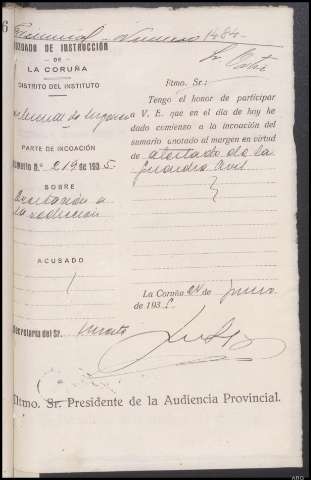 6
Número 1484
JUZGADO DE INSTRUCCIÓN
DE
LA CORUÑA
DISTRITO DEL INSTITUTO
PARTE DE INCOACIÓN
Sumario N.º 219 de 1935
SOBRE
Excitación a
la sedición
ACUSADO
Secretaría del Sr.
Iltmo. Sr.:
Tengo el honor de participar
a V. E. que en el día de hoy he
dado comienzo a la incoación del
sumario anotado al margen en virtud
de atestado de la
Guardia Civil
La Coruña 24 de junio
de 1935
Iltmo. Sr. Presidente de la Audiencia Provincial.